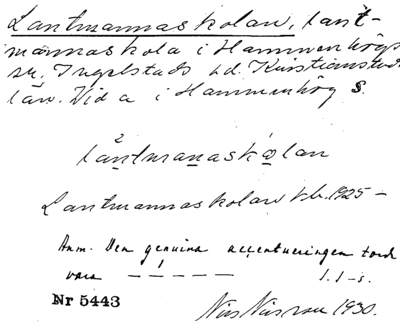 Lantmannaskolan, lant-
mannaskola i Hammenhögs
sn. Ingelstads hd. Kristianstads
län. Vid a i Hammenhög s.
2
lantmanaskọlan
Lantmannaskolan kb. 1925 –
Anm. Den genuina accentueringen torde
vara – – –́ – – – – I. I-s.
Nr 5443
Nils Nilsson 1930.